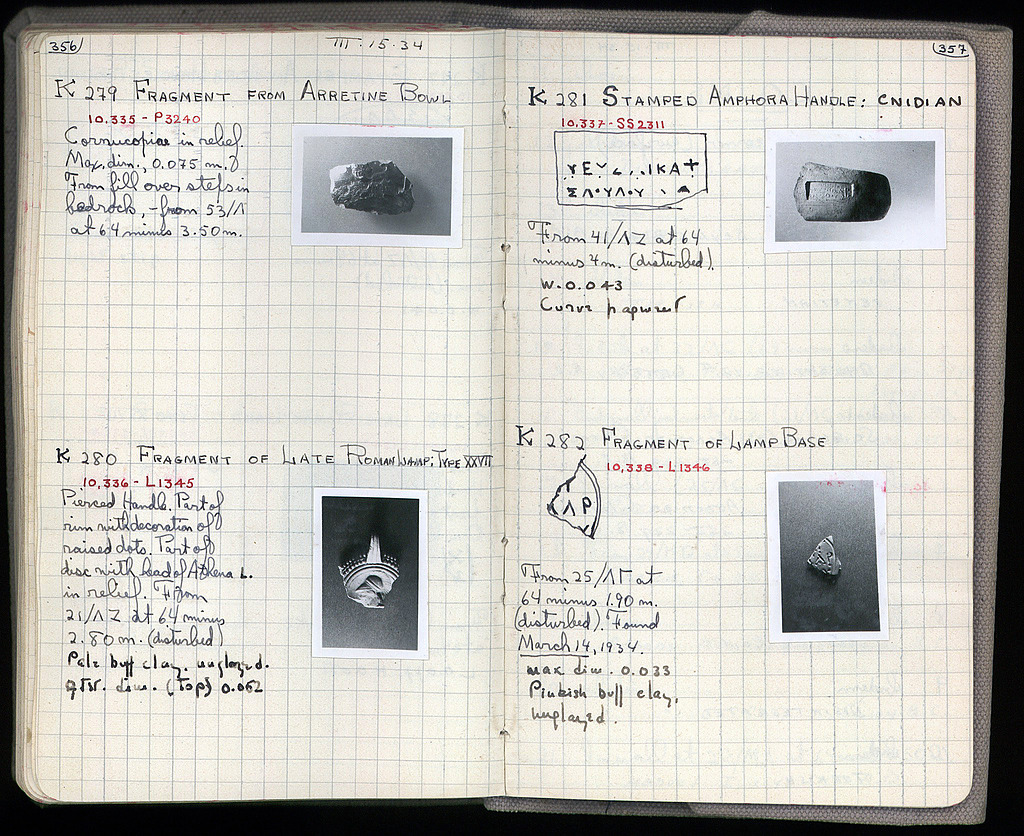 356
III · 15 · 34
K 279 FRAGMENT FROM ARRETINE BOWL
10,335 - P3240
Cornucopiae in relief.
Max. dim, 0.075 m.
From fill over steps in
bedrock, - from 53/Λ
at 64 minus 3.50 m.
K 280 FRAGMENT OF LATE ROMAN LAMP: TYPE XXVII
10,336 - L1345
Pierced Handle. Part of
rim with decoration of
raised dots. Part of
disc with head of Athena L.
in relief. From
21/ΛZ at 64 minus
2.80 m. (disturbed)
Pale buff clay. unglazed.
gtst. dim. (Top) 0.062
357
K 281 STAMPED AMPHORA HANDLE: CNIDIAN
10,337 - SS2311
ΣΛΟΥΛΟΥ
From 41/ΛZ at 64
minus 4 m. (disturbed).
W. 0.043
Curve
K 282 FRAGMENT OF LAMP BASE
10,338 - L1346
ΛP
From 25/ΛΓ at
64 minus 1.90 m.
(disturbed). Found
March 14, 1934.
max dim. 0.033
Pinkish buff clay,
unglazed.